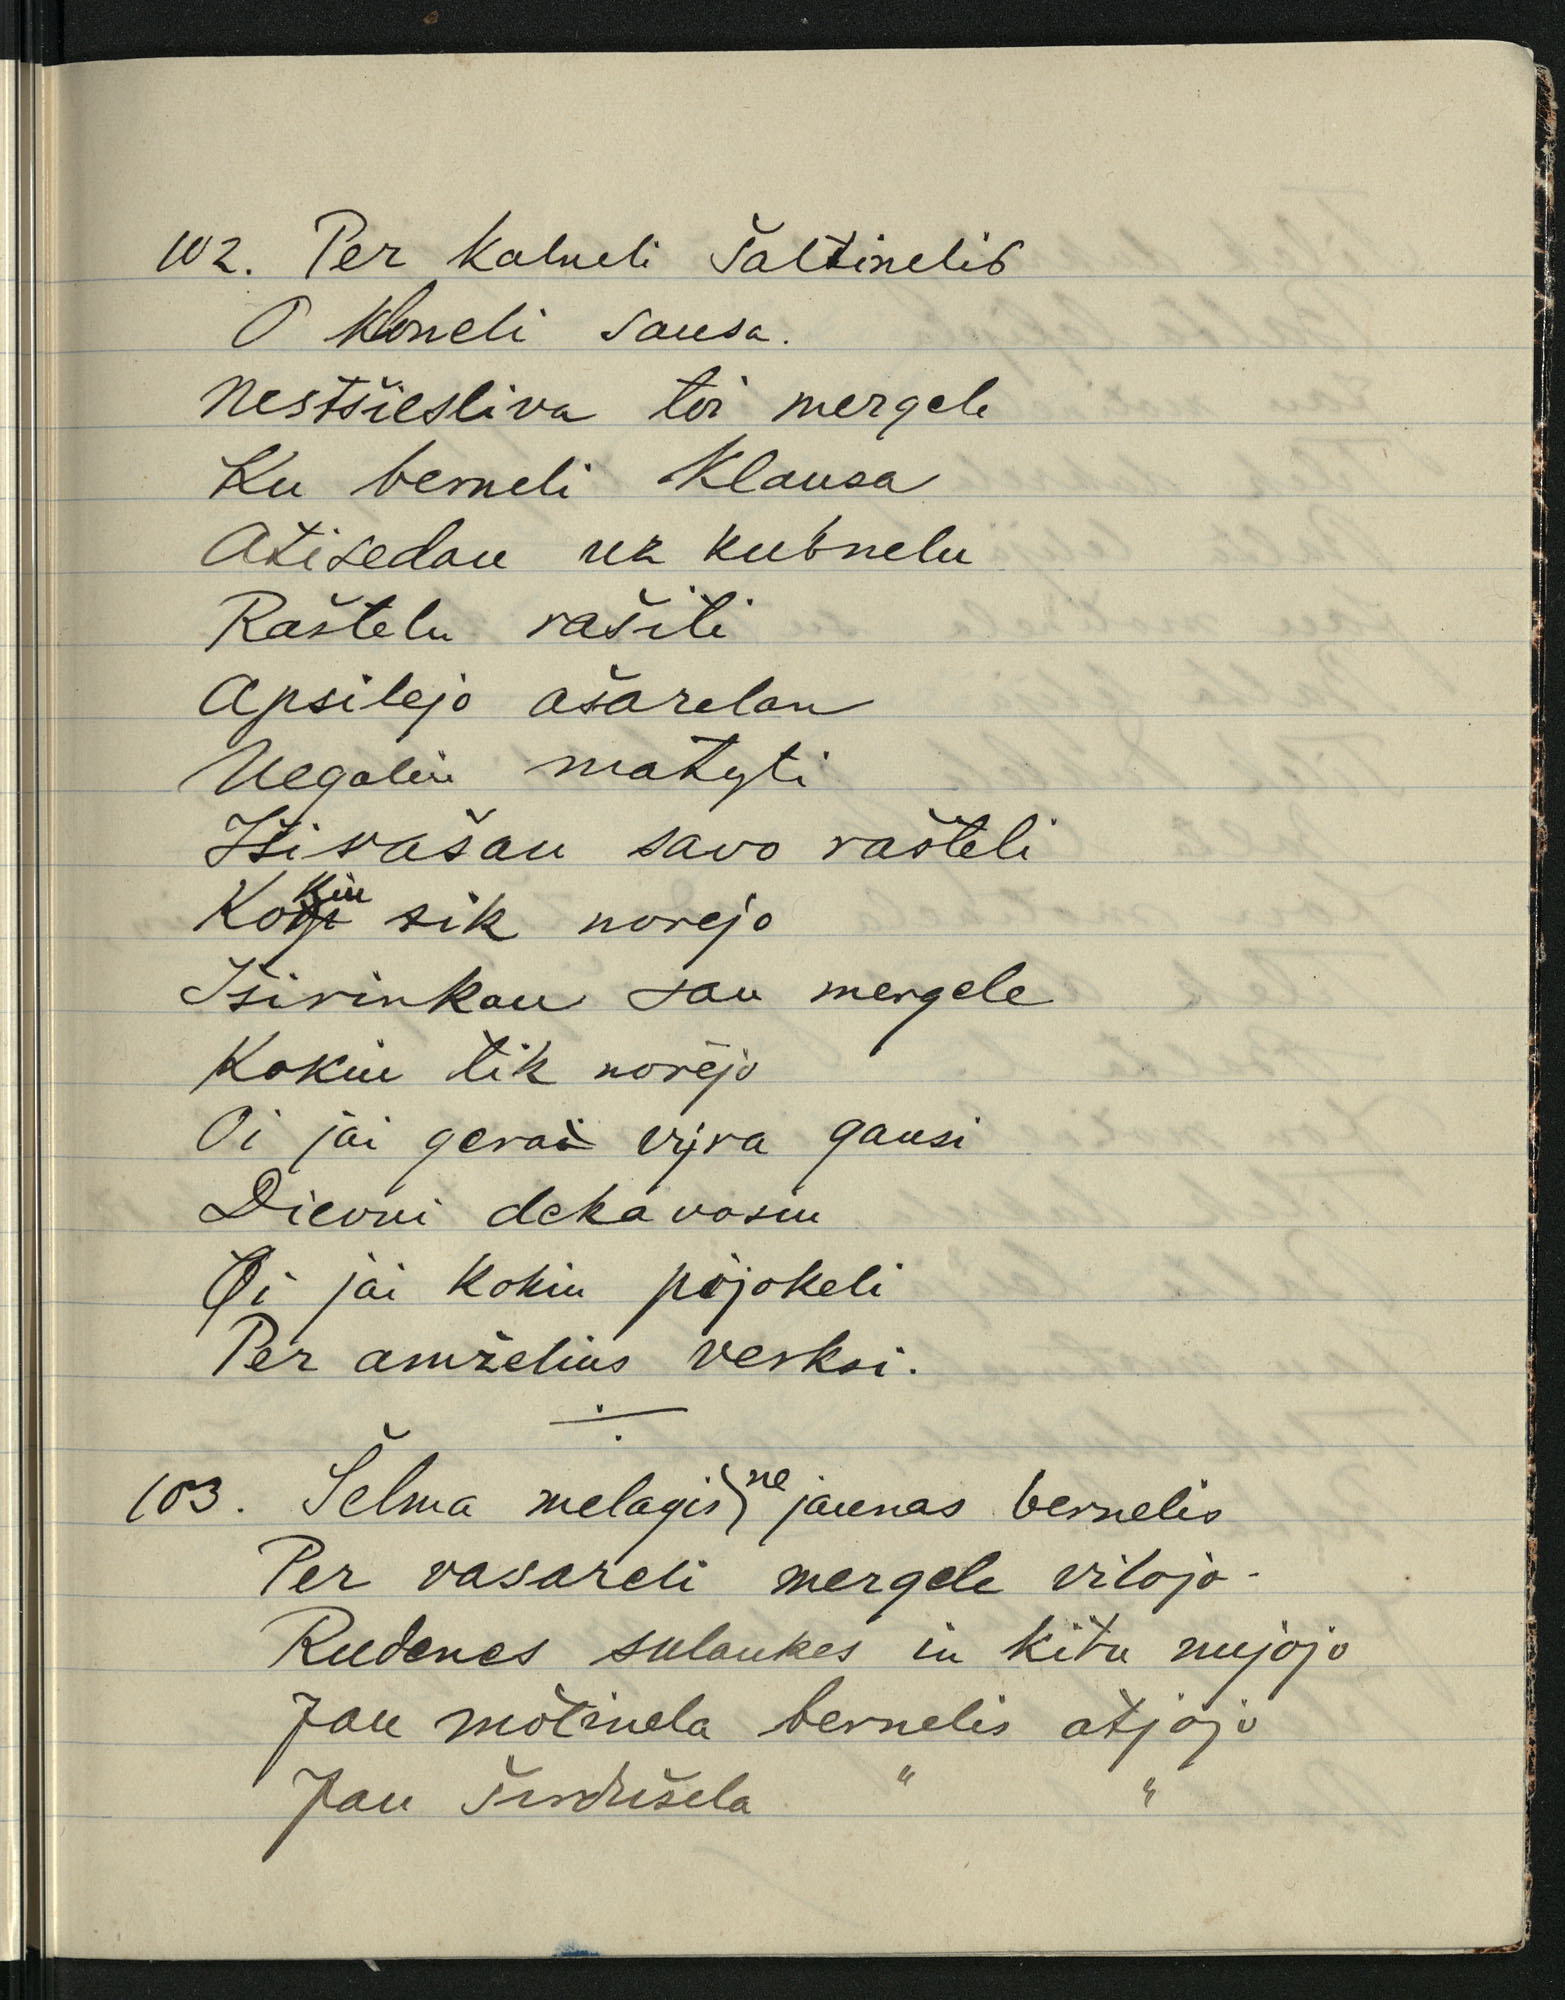 102. Per kalneli šaltinelis
O kloneli sausa.
Nestšiesliva toi mergele
Ku berneli klausa
Atisedau uz kubnelu
Raštelu rašiti
Apsilejo ašarelau
Negaliu matyti
Iširašau savo rašteli
Kokiu sik norejo
Iširinkau sau mergele
Kokiu tik norėjo
Oi jai gerai vyra gausi
Dievui dekavosiu
Oi jai kokiu pijokeli
Per amželius verksi.
103. Šelma melagis ne jaunas bernelis
Per vasareli mergele vilojo.
Rudenes sulaukes in kitu nujojo
Jau motinela bernelis atjojo
Jau širdušela " "